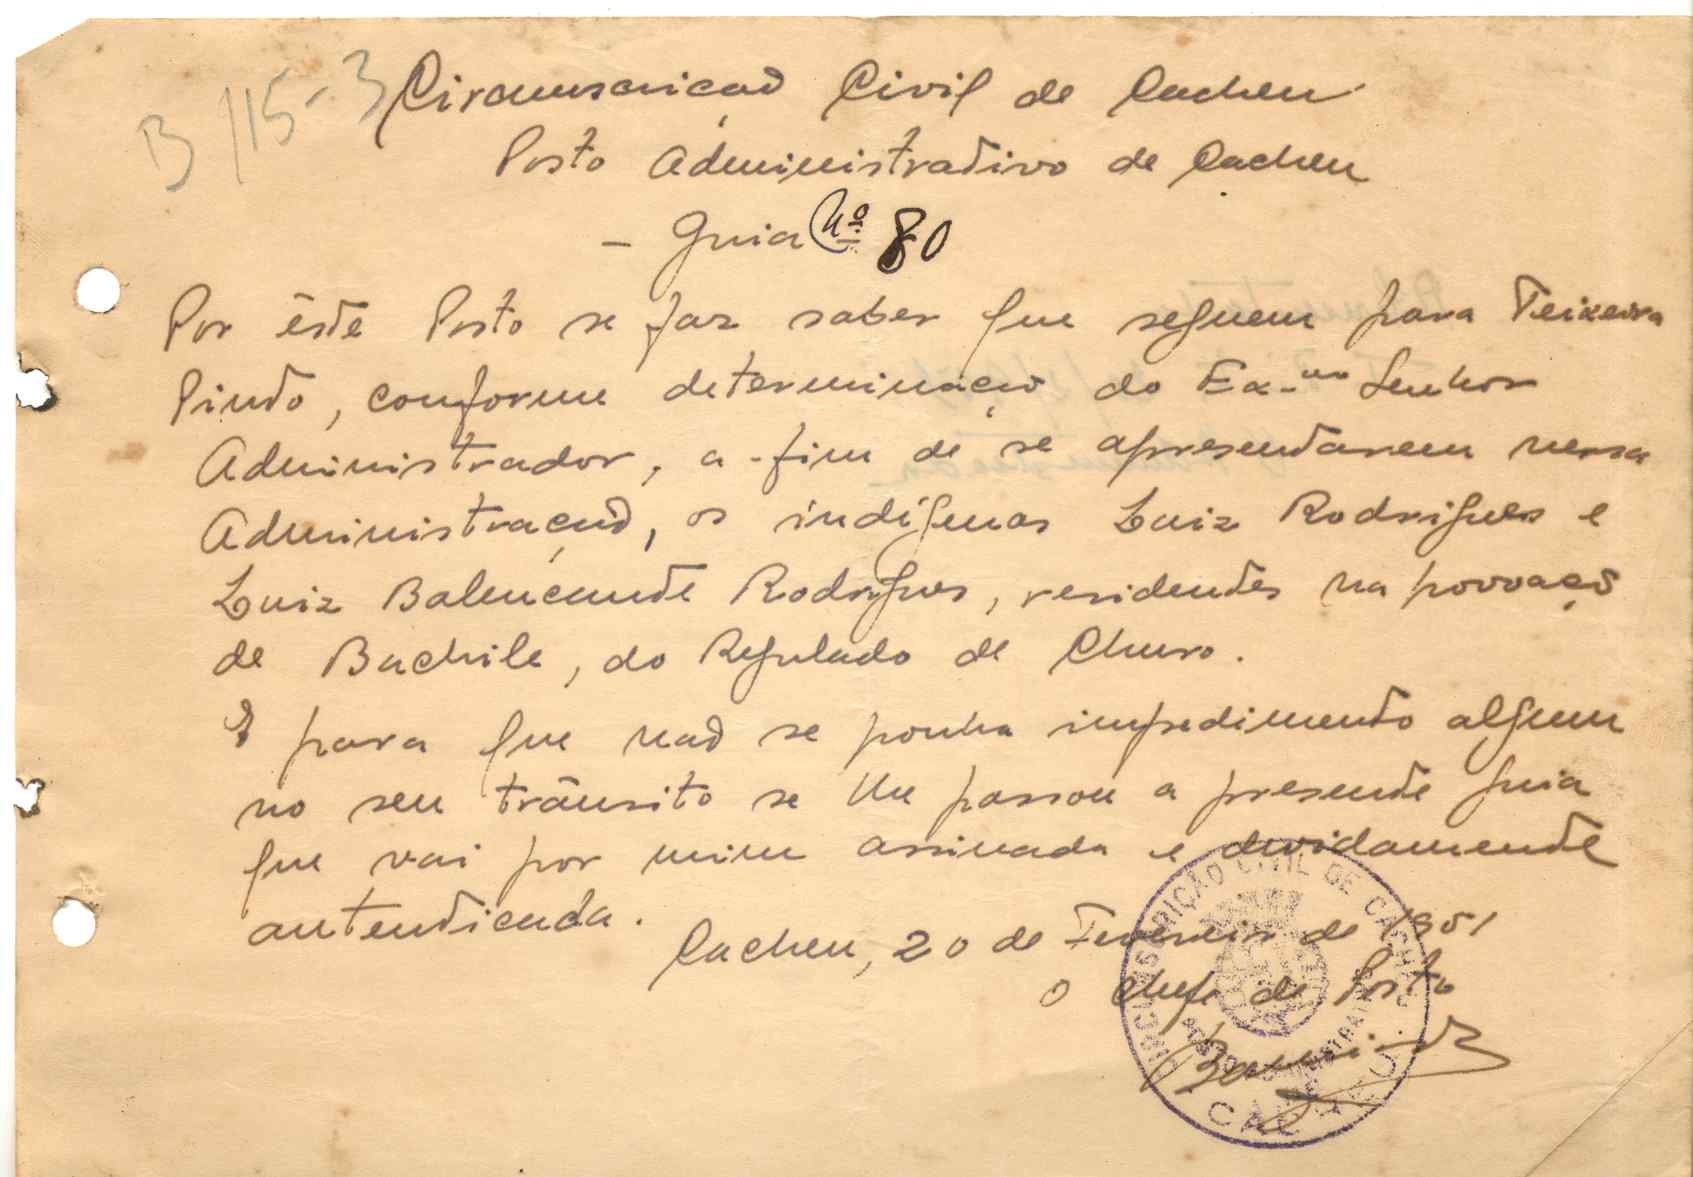 B/15-3
Circunscrição Civil de Cacheu
Posto Administrativo de Cacheu
- Guia Nº 80
Por êste Posto se faz saber que seguem para Teixeira
Pinto, conforme determinação do Ex.mo Senhor
Administrador, a-fim de se apresentarem nessa
Administração, os indígenas Luiz Rodrigues e
Luiz Balencante Rodrigues, residentes na povoação
de Bachile, do Regulado de Churo.
E para que não se ponha impedimento algum
no seu trânsito se lhe passou a presente guia
que vai por mim assinada e devidamente
autenticada.
Cacheu, 20 de Fevereiro de 1951
O Chefe de Posto
CIRCUNSCRIÇÃO CIVIL DE CACHEU
POSTO ADMINISTRATIVO DE
CACHEU